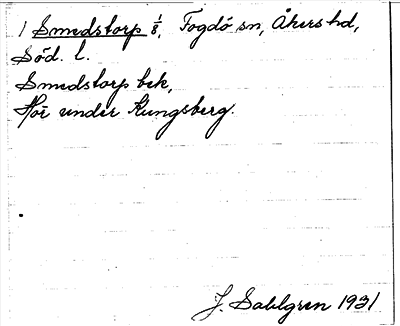 1 Smedstorp 1/8, Fogdö sn, Åkers hd,
Söd. l.
Smedstorp bek,
Hör under Kungsberg.
J. Sahlgren 1931